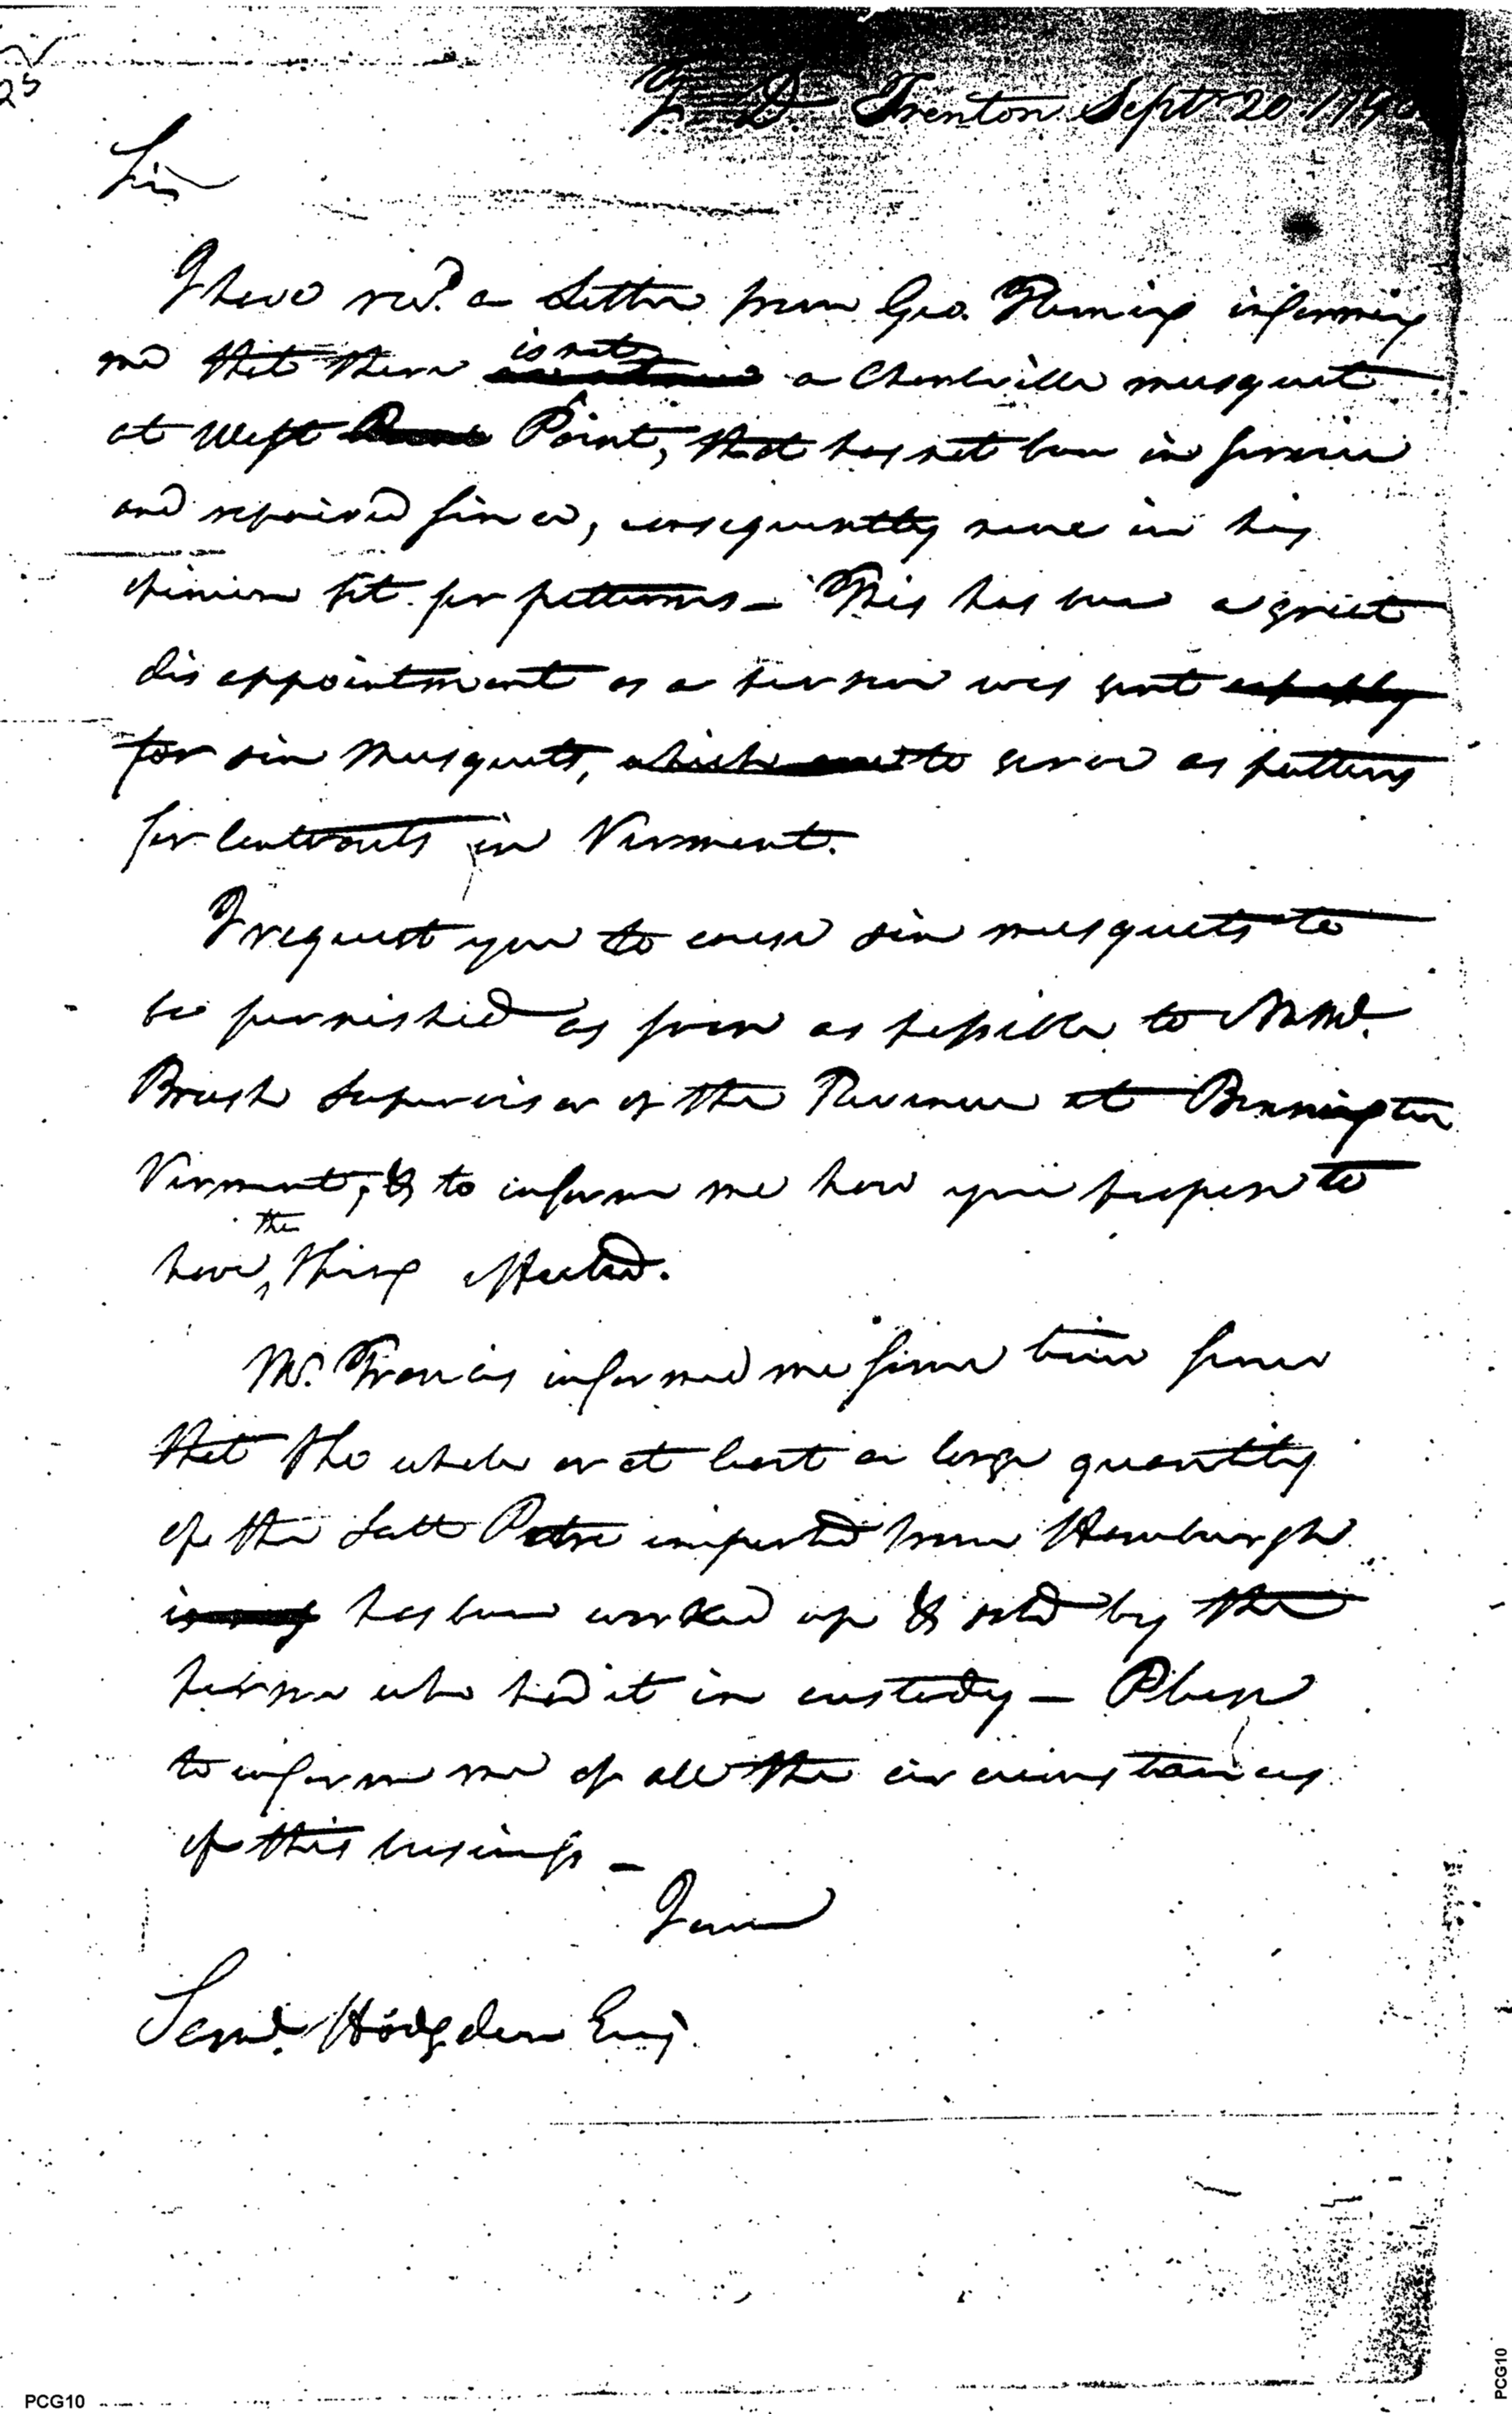 25
T. D. Trenton Sept 20. 179
Sir
I have recd. a Letter from Geo. Fleming informing
is not
me that there a Charleville musquet
at West Point, that has not been in service
and repaired since, consequently none in his
opinion fit for patterns — This has been a great
disappointment as a person was sent
for six musquets, which to serve as patterns
for Contracts in Vermont.
I request you to cause six musquets to
be furnished as soon as possible to Nathl.
Brush Supervisor of the Revenue at Bennington
Vermont, & to inform me how you propose to
the
have thing effected.
Mr. Francis informed me some time since
that the whole or at least a large quantity
of the Salt Petre imported from Hamburgh
has been worked up & sold by the
person who had it in custody — Please
to inform me of all the circumstances
of this business —
I am
Saml. Hodgdon Esq.
PCG10
PCG10